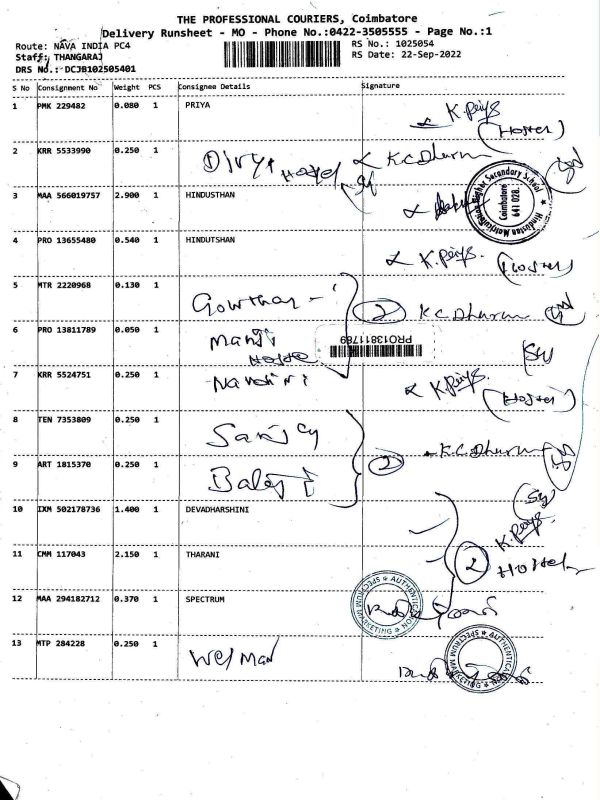 THE PROFESSIONAL COURIERS, Coimbatore
Delivery Runsheet - MO - Phone No.:0422-3505555 - Page No.:1
Route: NAVA INDIA PC4
RS No.: 1025054
Staff: THANGARAJ
RS Date: 22-Sep-2022
DRS No.: DCJB102505401
S No Consignment No Weight PCS Consignee Details Signature
1 PMK 229482 0.080 1 PRIYA K. Priya
(Hostel)
2 KRR 5533990 0.250 1 Divya Hostel K.C Dharun
3 MAA 566019757 2.900 1 HINDUSTHAN
Secondary School
Coimbatore
641 028.
4 PRO 13655480 0.540 1 HINDUTSHAN K. Priya
(Hostel)
5 MTR 2220968 0.130 1 Gowtham 2 K.C Dharun
6 PRO 13811789 0.050 1 Manji
Hostel
PRO13811789
7 KRR 5524751 0.250 1 Nandini K. Priya
(Hostel)
8 TEN 7353809 0.250 1 Sanjay
2 K.C Dharun
9 ART 1815370 0.250 1 Balaji
10 IXM 502178736 1.400 1 DEVADHARSHINI
K. Priya
11 CMM 117043 2.150 1 THARANI 2 Hostel
12 MAA 294182712 0.370 1 SPECTRUM
SPECTRUM MARKETING
13 MTP 284228 0.250 1
SPECTRUM MARKETING